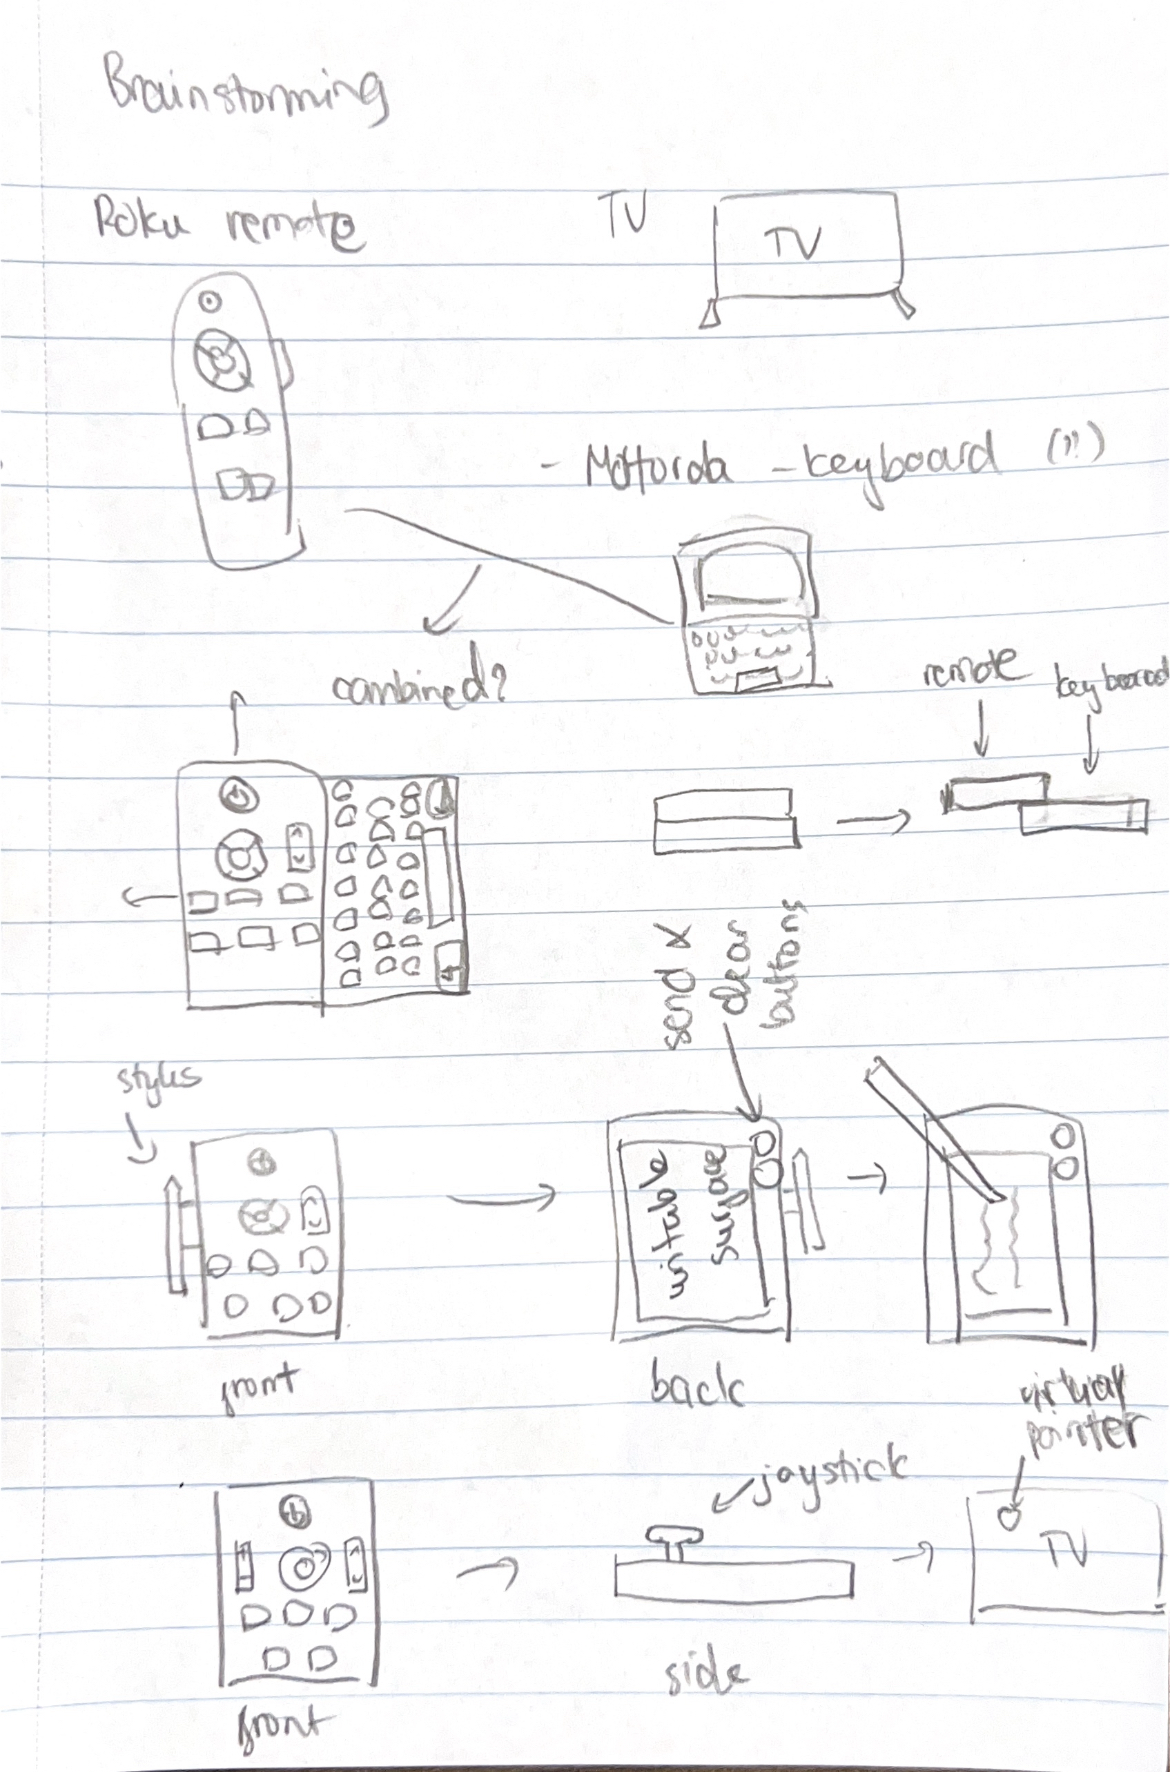 Brainstorming
Roku remote
TV
TV
- Mottorola - keyboard (!!)
combined?
remote
keyboard
send &
clear
buttons
stylus
writable
surface
front
back
virtual
pointer
joystick
TV
side
front